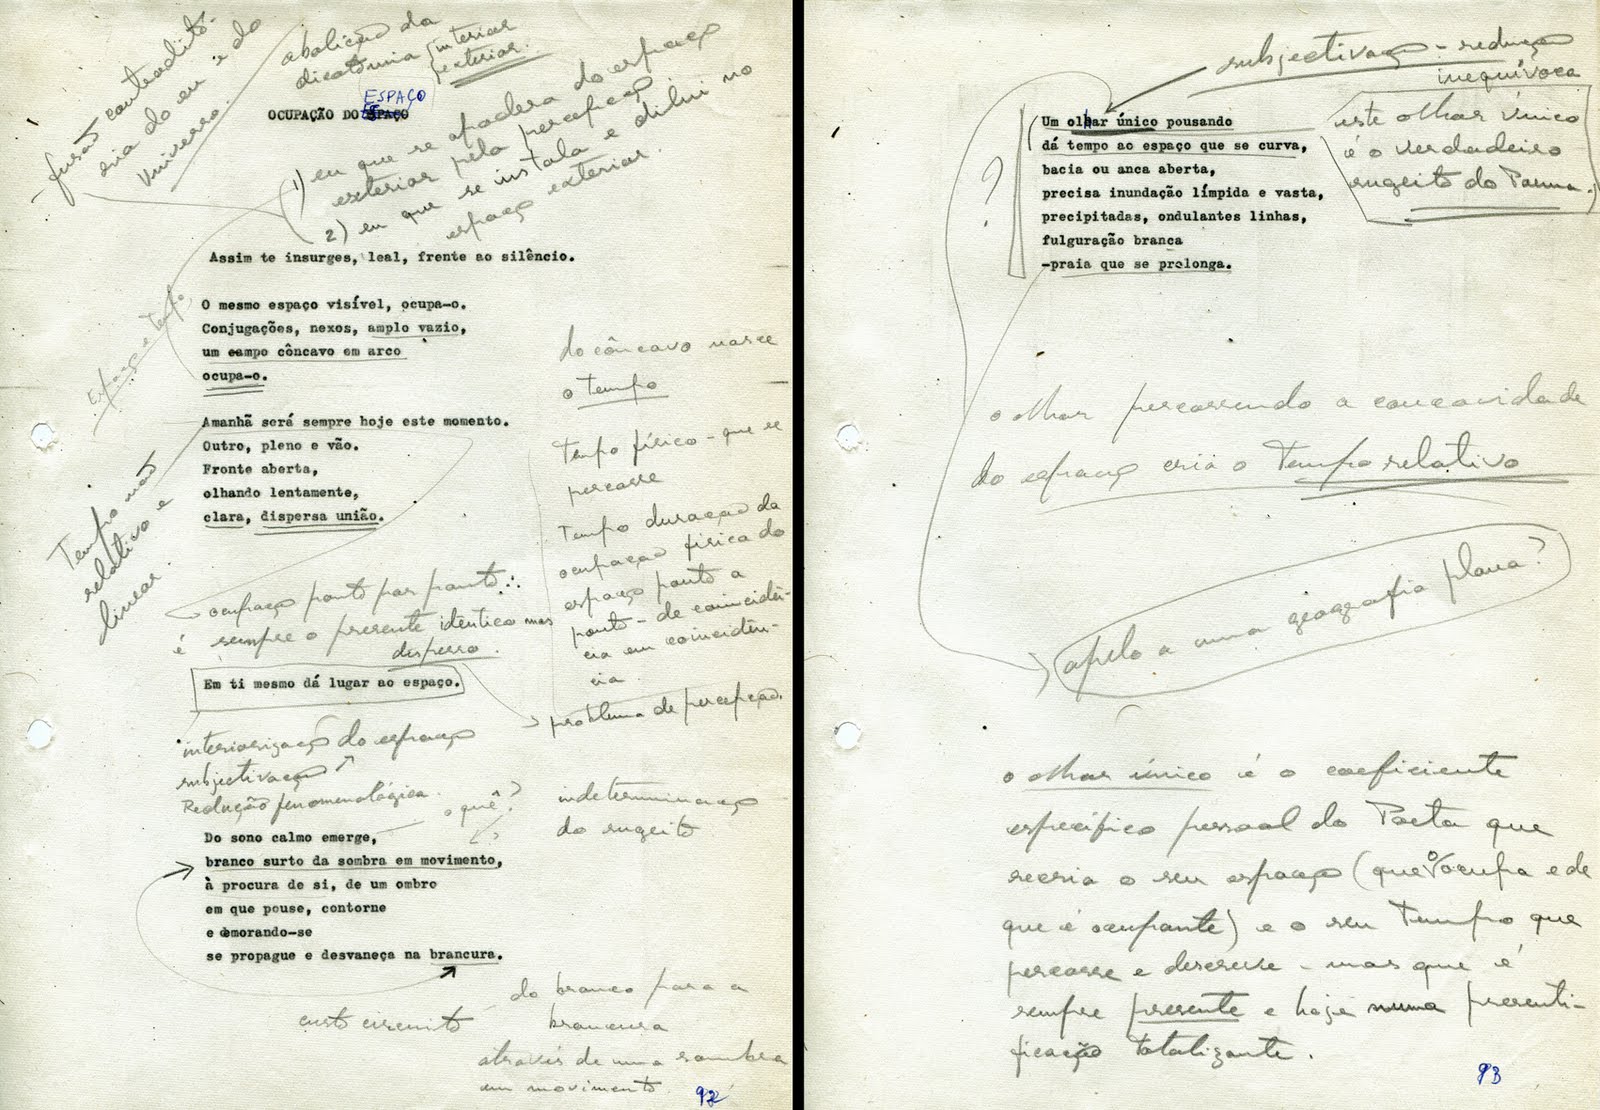 fusão contraditó-
ria do eu e do
Universo.
abolição da
dicotomia interior
exterior.
ESPAÇO
OCUPAÇÃO DO ESPAÇO
1) eu que se apodera do espaço
exterior pela percepção
2) eu que se instala e dilui no
espaço exterior.
Assim te insurges, leal, frente ao silêncio.
Espaço e tempo
O mesmo espaço visível, ocupa-o.
Conjugações, nexos, amplo vazio,
um campo côncavo em arco
ocupa-o.
do côncavo nasce
o tempo
Amanhã será sempre hoje este momento.
Outro, pleno e vão.
Fronte aberta,
olhando lentamente,
clara, dispersa união.
Tempo não
relativo e
linear.
Tempo físico - que se
percorre
Tempo duração da
ocupação física do
espaço ponto a
ponto - de coincidên-
cia em coincidên-
cia.
ocupação ponto por ponto ∴
é sempre o presente idêntico mas
disperso.
Em ti mesmo dá lugar ao espaço.
problema de percepção.
interiorização do espaço
subjectivação
Redução fenomenológica.
o quê?
indeterminação
do sugeito
Do sono calmo emerge,
branco surto da sombra em movimento,
à procura de si, de um ombro
em que pouse, contorne
e demorando-se
se propague e desvaneça na brancura.
curto circuito
do branco para a
brancura
através de uma sombra
em movimento
92
subjectivação - redução
inequívoca
Um olhar único pousando
dá tempo ao espaço que se curva,
bacia ou anca aberta,
precisa inundação límpida e vasta,
precipitadas, ondulantes linhas,
fulguração branca
-praia que se prolonga.
?
este olhar único
é o verdadeiro
sugeito do Poema.
o olhar percorrendo a concavidade
do espaço cria o Tempo relativo
apelo a uma geografia plana?
o olhar único é o coeficiente
específico pessoal do Poeta que
recria o seu espaço (que o ocupa e de
que é ocupante) e o seu Tempo que
percorre e descreve - mas que é
sempre presente e hoje numa presenti-
ficação totalizante.
93